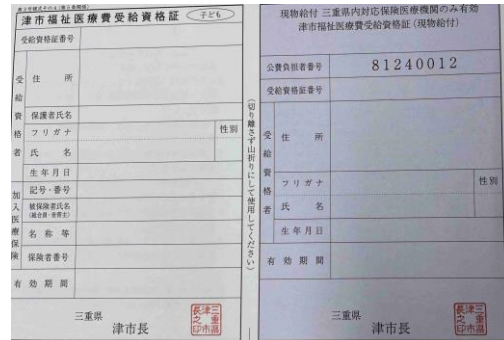 津市福祉医療費受給資格証 子ども
受給資格証番号
受給資格者
住所
保護者氏名
フリガナ
性別
氏名
生年月日
加入医療保険
記号・番号
被保険者氏名
(組合員・世帯主)
名称等
保険者番号
有効期間
三重県
津市長
三重県津市長之印
(切り離さず山折りにして使用してください)
現物給付 三重県内対応保険医療機関のみ有効
津市福祉医療費受給資格証(現物給付)
公費負担者番号 81240012
受給資格証番号
受給資格者
住所
フリガナ
性別
氏名
生年月日
有効期間
三重県
津市長
三重県津市長之印